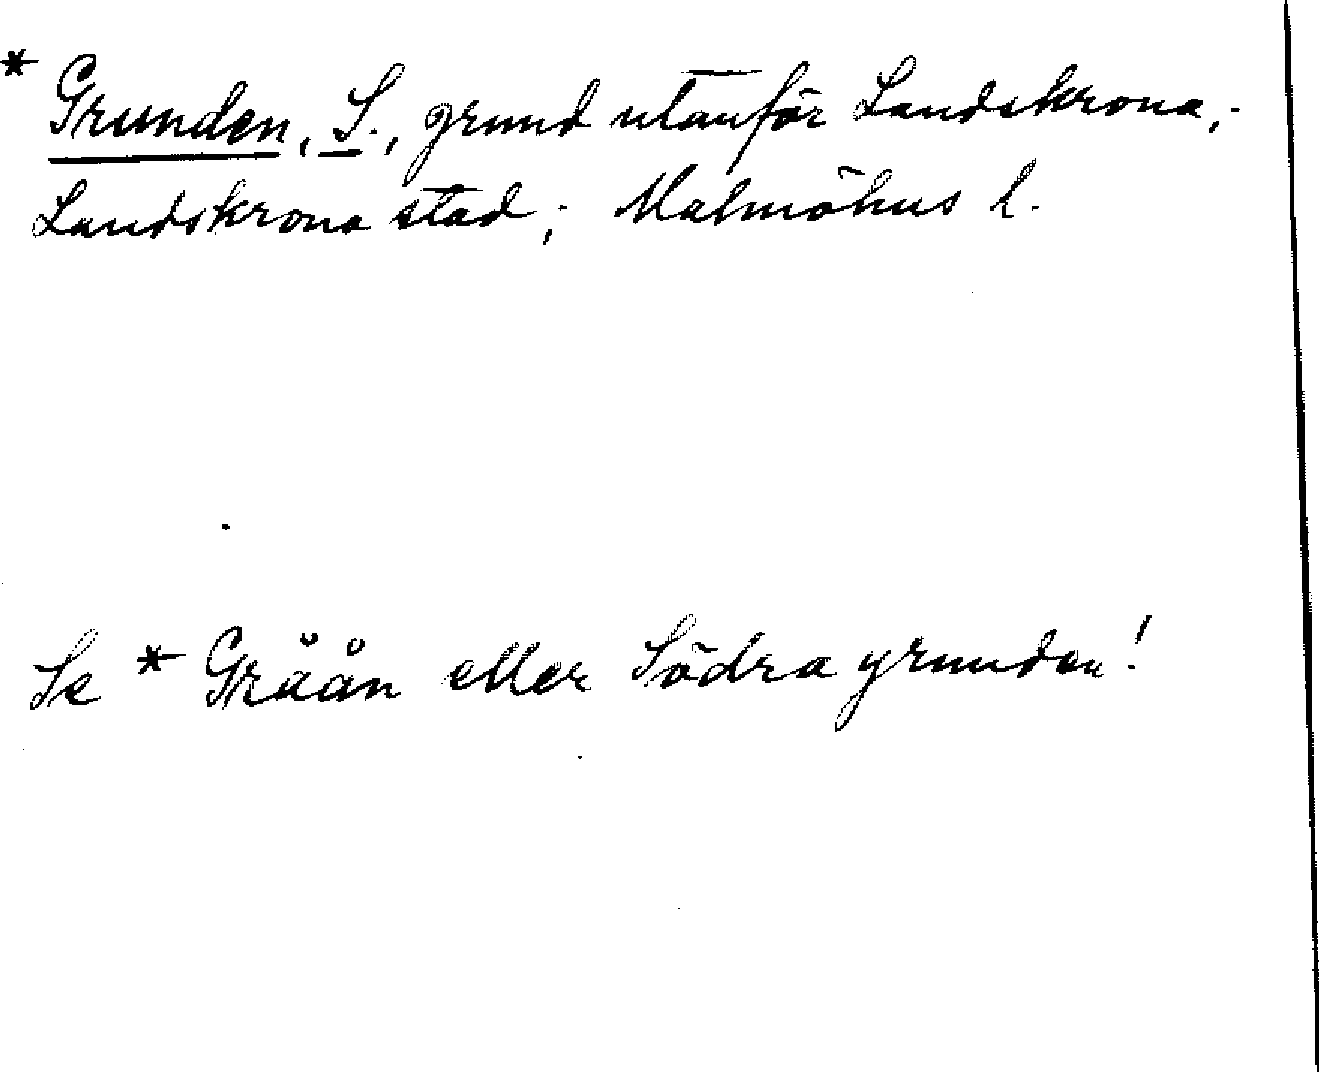 * Grunden, S., grund utanför Landskrona,.
Landskrona stad; Malmöhus l.
Se * Gråån eller Södra grunden!